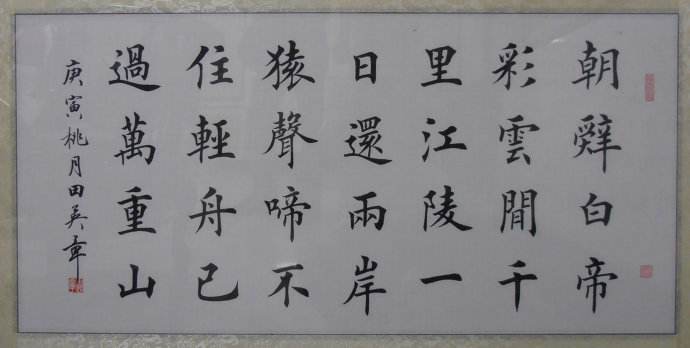 朝辭白帝
彩雲間千
里江陵一
日還兩岸
猿聲啼不
住輕舟已
過萬重山
庚寅桃月田英章